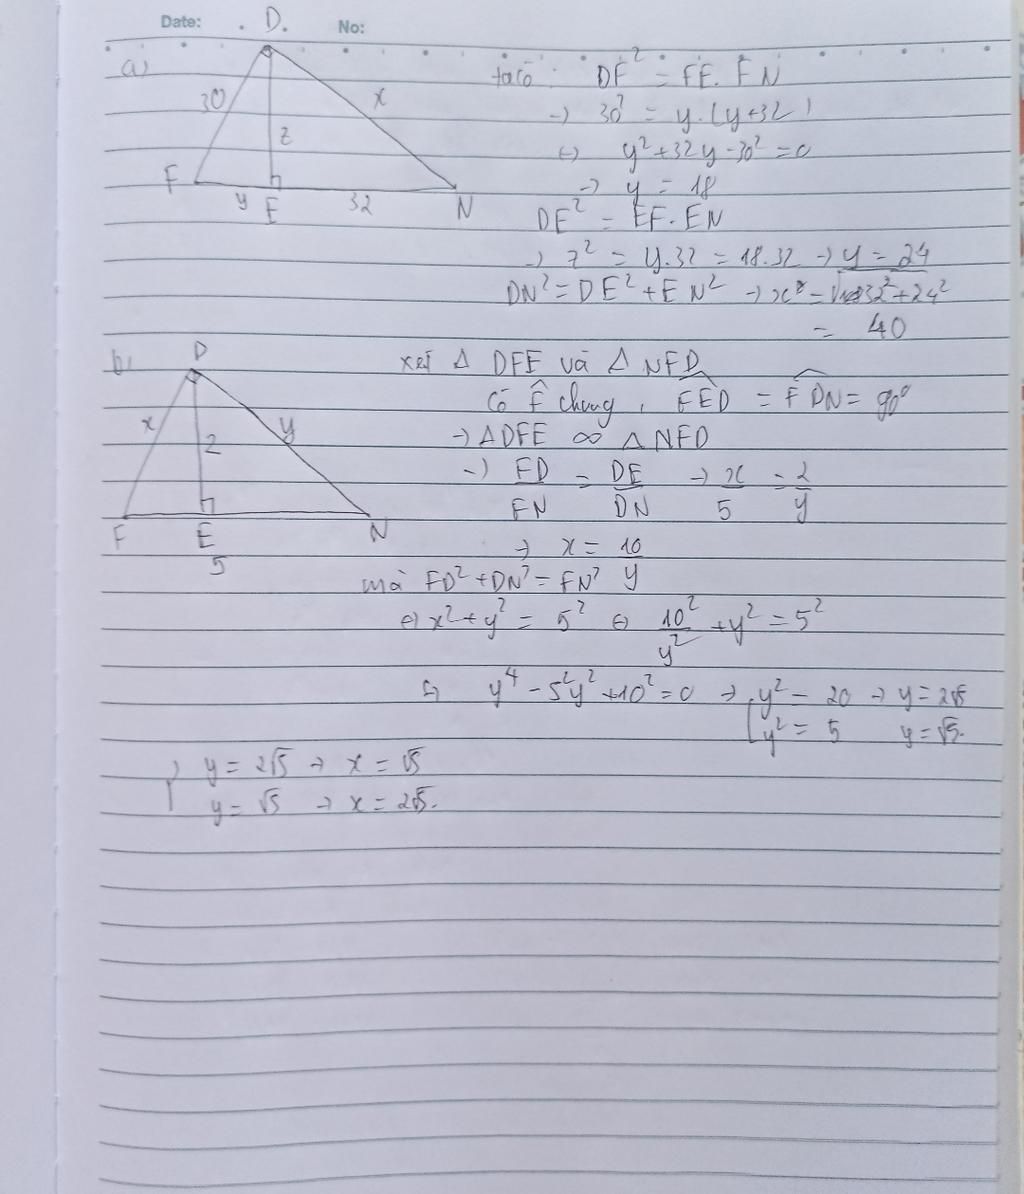 Date: . D. No:
a) ta có: DF² = FE. FN
30 x → 30² = y.(y+32)
z ↔ y²+32y-30² = 0
F y E 32 N → y = 18
DE² = EF. EN
→ z² = y.32 = 18.32 → y = 24
DN² = DE² + EN² → x = √32²+24²
= 40
b) D xét Δ DFE và Δ NFD
có F̂ chung, FED = FDN = 90°
x 2 y → ΔDFE ∞ ΔNFD
→ FD/FN = DE/DN → x/5 = 2/y
F E N
5 → x = 10/y
mà FD² + DN² = FN²
⇔ x² + y² = 5² ⇔ 10²/y² + y² = 5²
⇔ y⁴ - 5²y² + 10² = 0 → [ y² = 20 → y = 2√5
y² = 5 y = √5.
y = 2√5 → x = √5
y = √5 → x = 2√5.